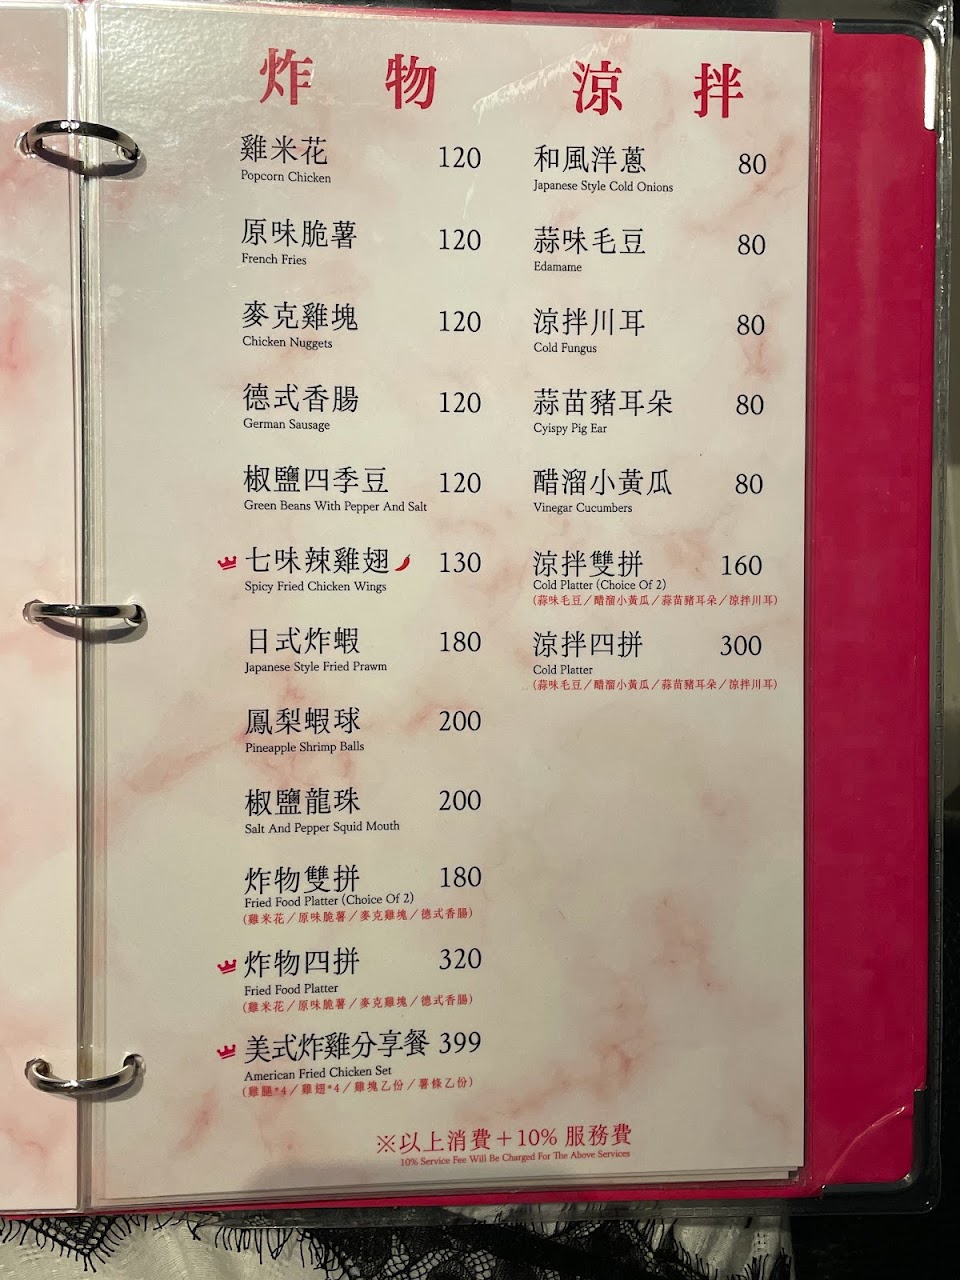 炸物
雞米花 120
Popcorn Chicken
原味脆薯 120
French Fries
麥克雞塊 120
Chicken Nuggets
德式香腸 120
German Sausage
椒鹽四季豆 120
Green Beans With Pepper And Salt
七味辣雞翅 130
Spicy Fried Chicken Wings
日式炸蝦 180
Japanese Style Fried Prawm
鳳梨蝦球 200
Pineapple Shrimp Balls
椒鹽龍珠 200
Salt And Pepper Squid Mouth
炸物雙拼 180
Fried Food Platter (Choice Of 2)
(雞米花／原味脆薯／麥克雞塊／德式香腸)
炸物四拼 320
Fried Food Platter
(雞米花／原味脆薯／麥克雞塊／德式香腸)
美式炸雞分享餐 399
American Fried Chicken Set
(雞腿*4／雞翅*4／雞塊乙份／薯條乙份)
涼拌
和風洋蔥 80
Japanese Style Cold Onions
蒜味毛豆 80
Edamame
涼拌川耳 80
Cold Fungus
蒜苗豬耳朵 80
Cyispy Pig Ear
醋溜小黃瓜 80
Vinegar Cucumbers
涼拌雙拼 160
Cold Platter (Choice Of 2)
(蒜味毛豆／醋溜小黃瓜／蒜苗豬耳朵／涼拌川耳)
涼拌四拼 300
Cold Platter
(蒜味毛豆／醋溜小黃瓜／蒜苗豬耳朵／涼拌川耳)
※以上消費＋10% 服務費
10% Service Fee Will Be Charged For The Above Services